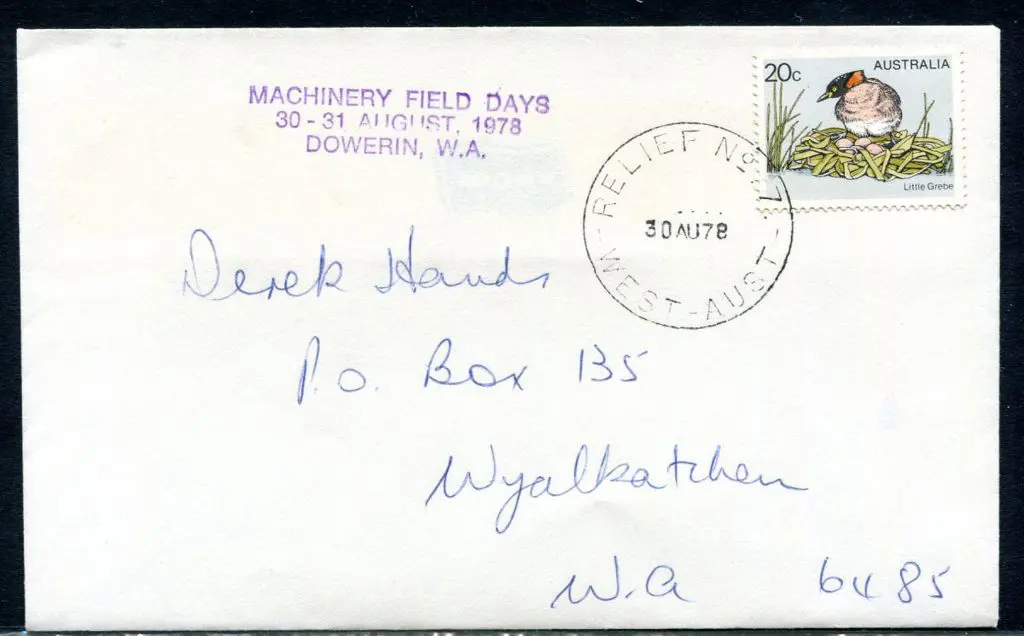 MACHINERY FIELD DAYS
30 - 31 AUGUST, 1978
DOWERIN, W.A.
20c AUSTRALIA
Little Grebe
RELIEF No 7
30AU78
WEST-AUST
Derek Hands
P.O. Box 135
Wyalkatchem
W.A 6485